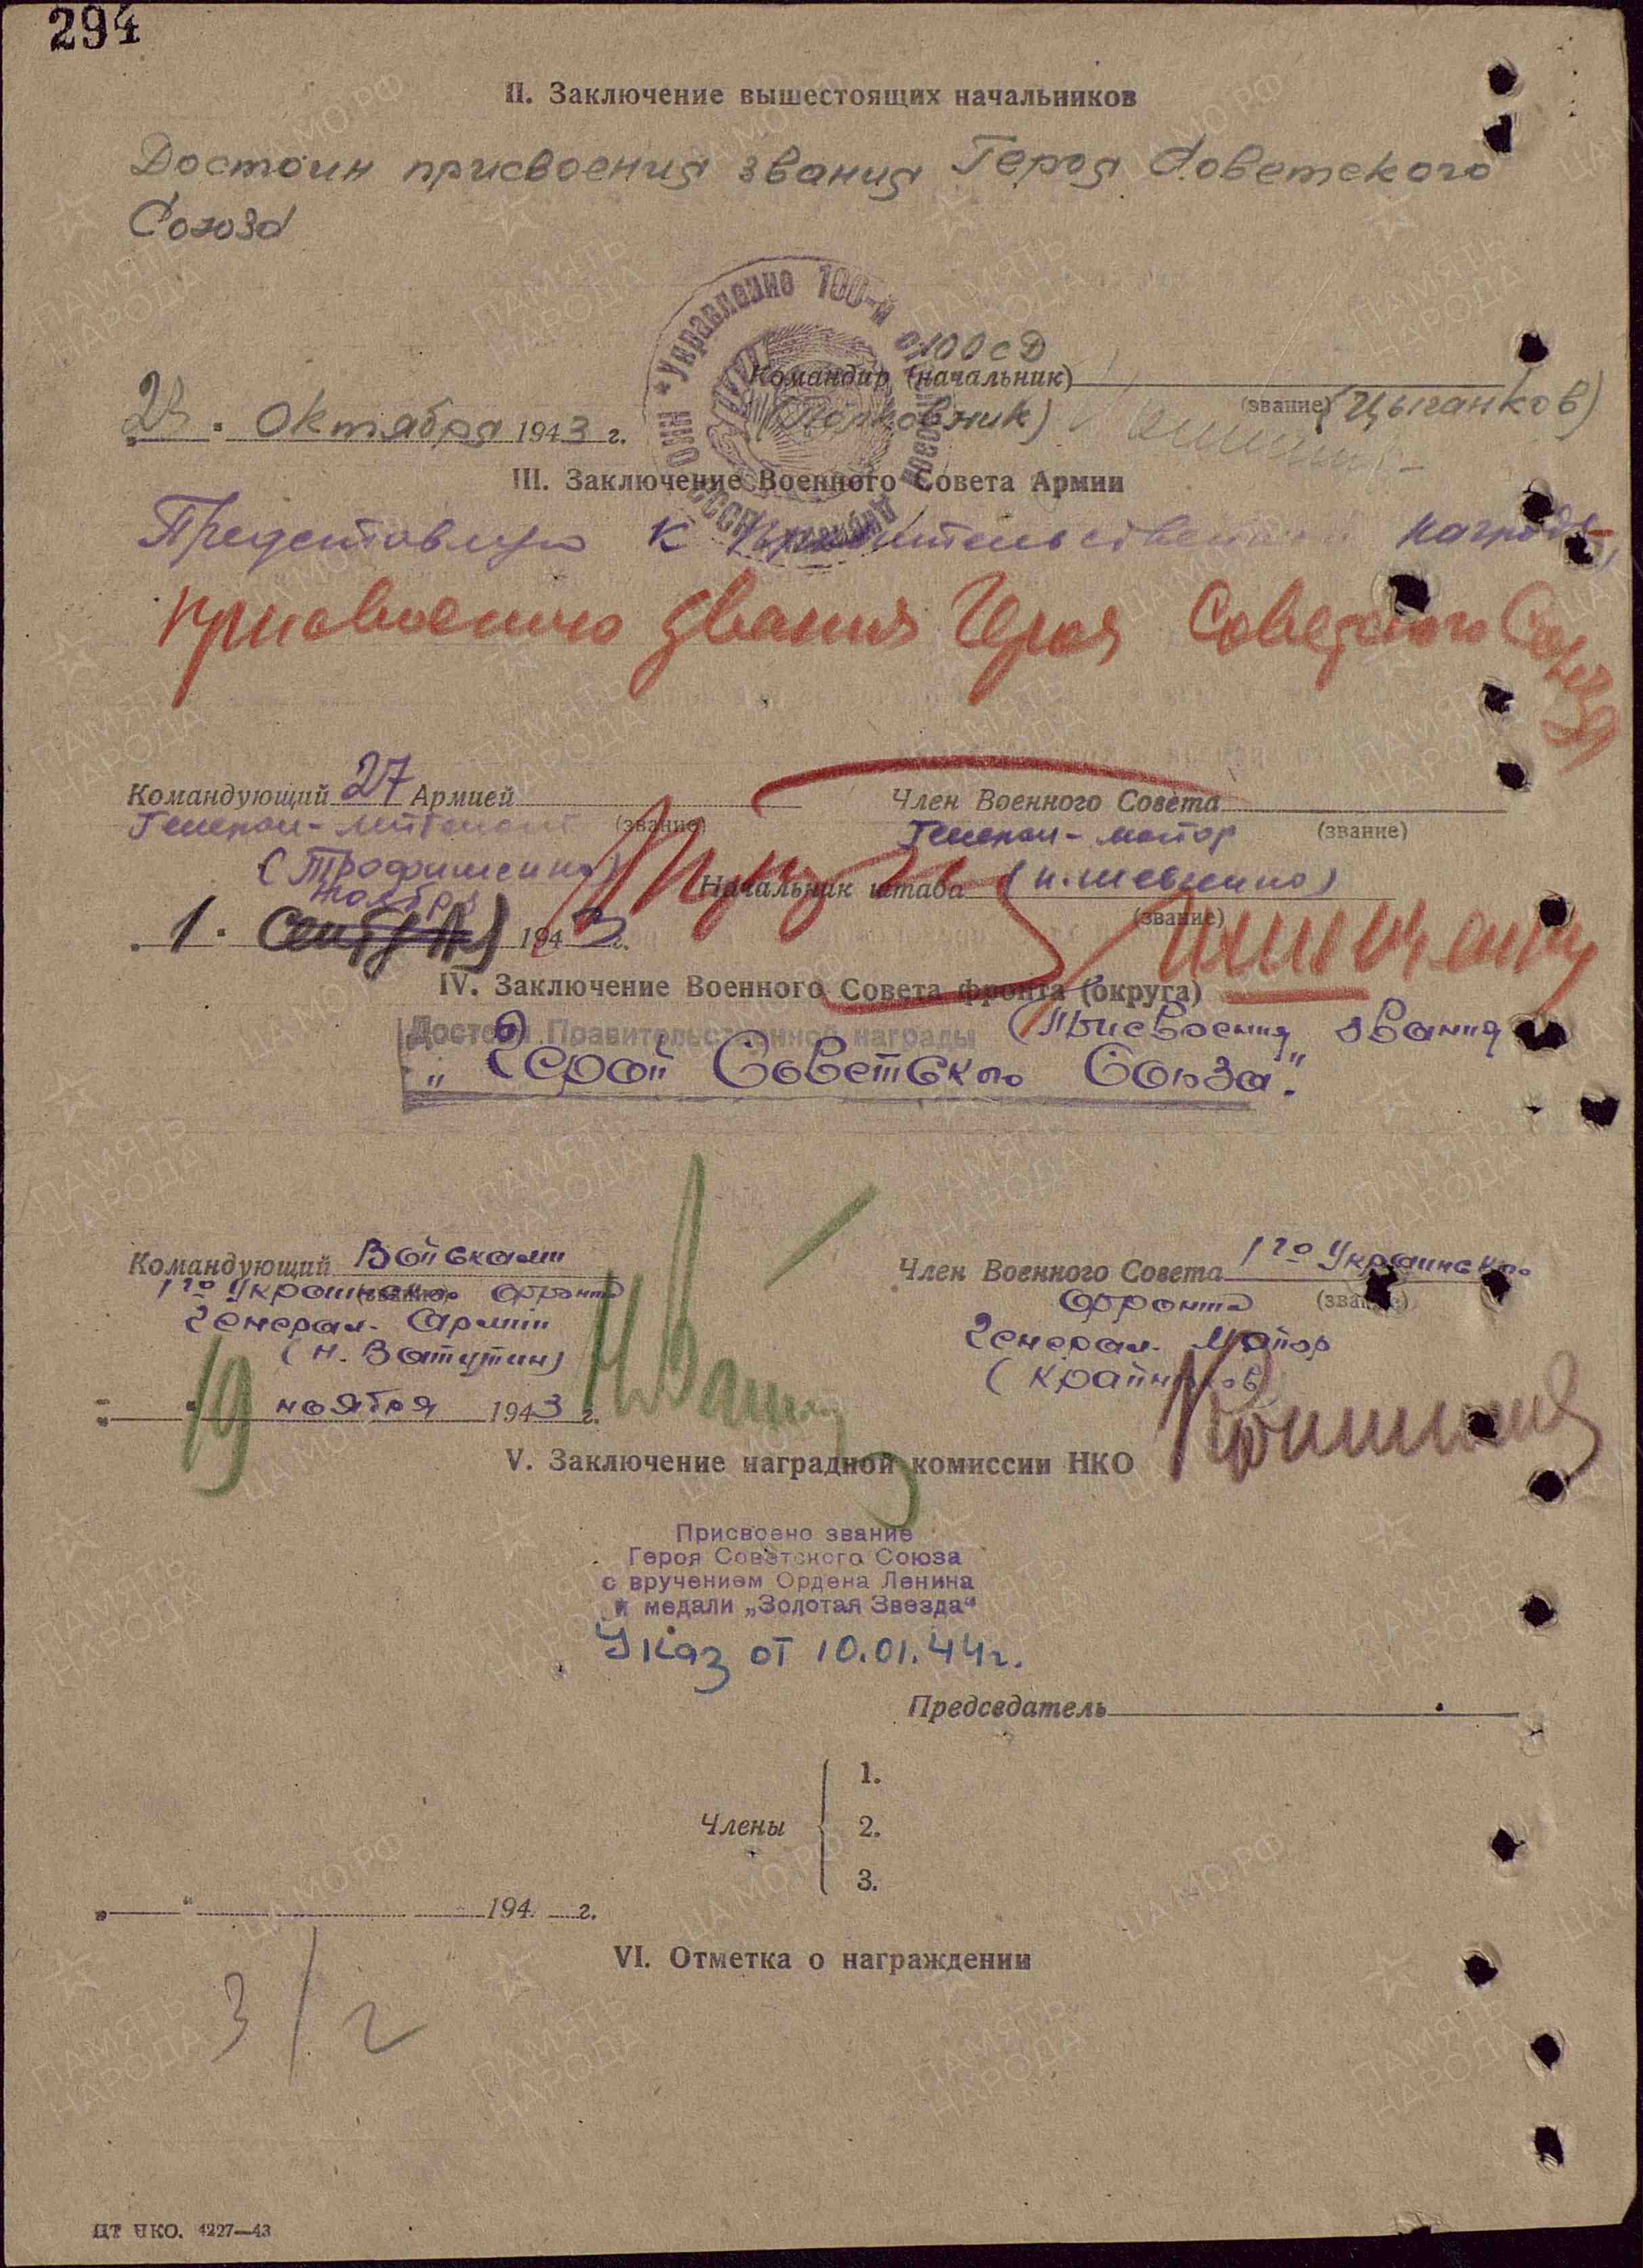 294
II. Заключение вышестоящих начальников
Достоин присвоения звания Героя Советского
Союза
Управление 100-й
СССР
100 СД
Командир (начальник)
(звание)
(Полковник)
(Цыганков)
Октября 1943 г.
III. Заключение Военного Совета Армии
Представляю к Правительственной награде,
присвоению звания Героя Советского Союза
Командующий 27 Армией
(звание)
Генерал-лейтенант
(Трофименко)
Член Военного Совета
Генерал-майор
(звание)
Начальник штаба
(И. Шевченко)
(звание)
ноября
1. 1943 г.
IV. Заключение Военного Совета фронта (округа)
Достоин Правительственной награды (присвоения звания
„Герой Советского Союза".
Командующий Войсками
1го Украинского фронта
(звание)
Генерал Армии
(Н. Ватутин)
19 ноября 1943 г.
Член Военного Совета 1го Украинского
фронта
(звание)
Генерал Майор
(Крайнюков)
V. Заключение наградной комиссии НКО
Присвоено звание
Героя Советского Союза
с вручением Ордена Ленина
и медали „Золотая Звезда"
Указ от 10.01.44г.
Председатель
Члены
1.
2.
3.
194 г.
VI. Отметка о награждении
ЦТ НКО. 4227—43
ПАМЯТЬ НАРОДА
ЦАМО.РФ